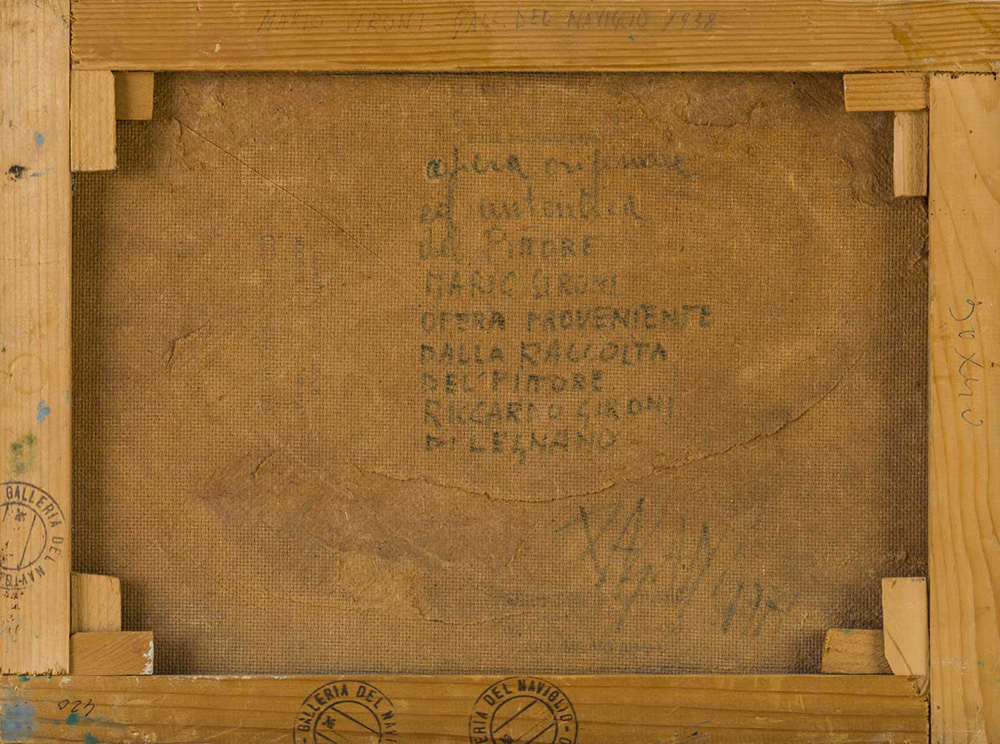 MARIO SIRONI - GALL. DEL NAVIGLIO 1938
opera originale
ed autentica
del PITTORE
MARIO SIRONI
OPERA PROVENIENTE
DALLA RACCOLTA
DEL PITTORE
RICCARDO GIRONI
DI LEGNANO -
50x40
GALLERIA DEL NAVIGLIO
420
GALLERIA DEL NAVI
ERIA DEL NAVIGLIO